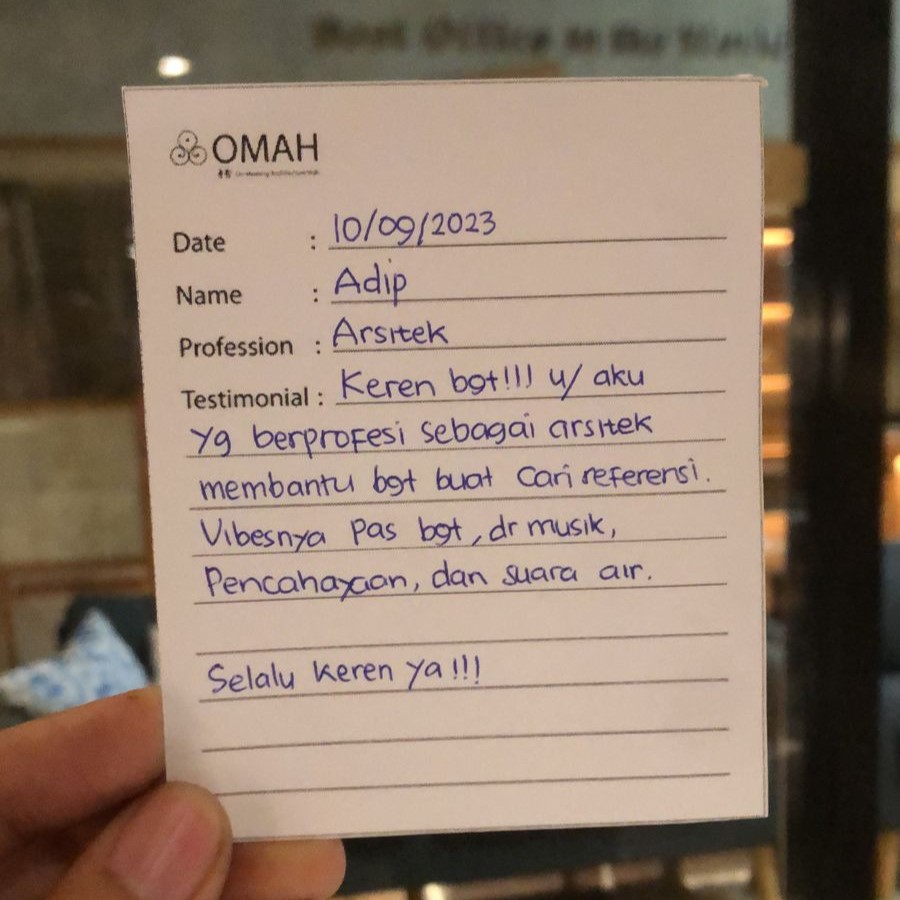 Best Office in the World
OMAH
Date : 10/09/2023
Name : Adip
Profession : Arsitek
Testimonial : Keren bgt!!! u/ aku
yg berprofesi sebagai arsitek
membantu bgt buat cari referensi.
Vibesnya pas bgt, dr musik,
Pencahayaan, dan suara air.
Selalu keren ya!!!